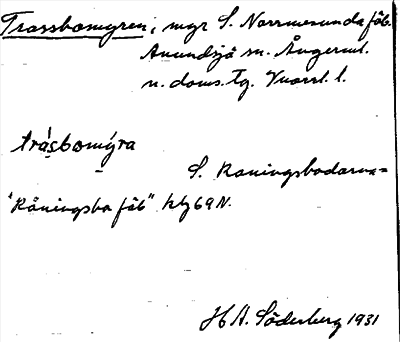 Trossbomyren; myr S. Norrmesunda fäb.
Anundsjö sn. Ångerml.
n. doms. Tg.
tråsbomýra
S. Koningsbodarna =
"Råningsba fäb" kbg 69 N.
H A. Söderberg 1931